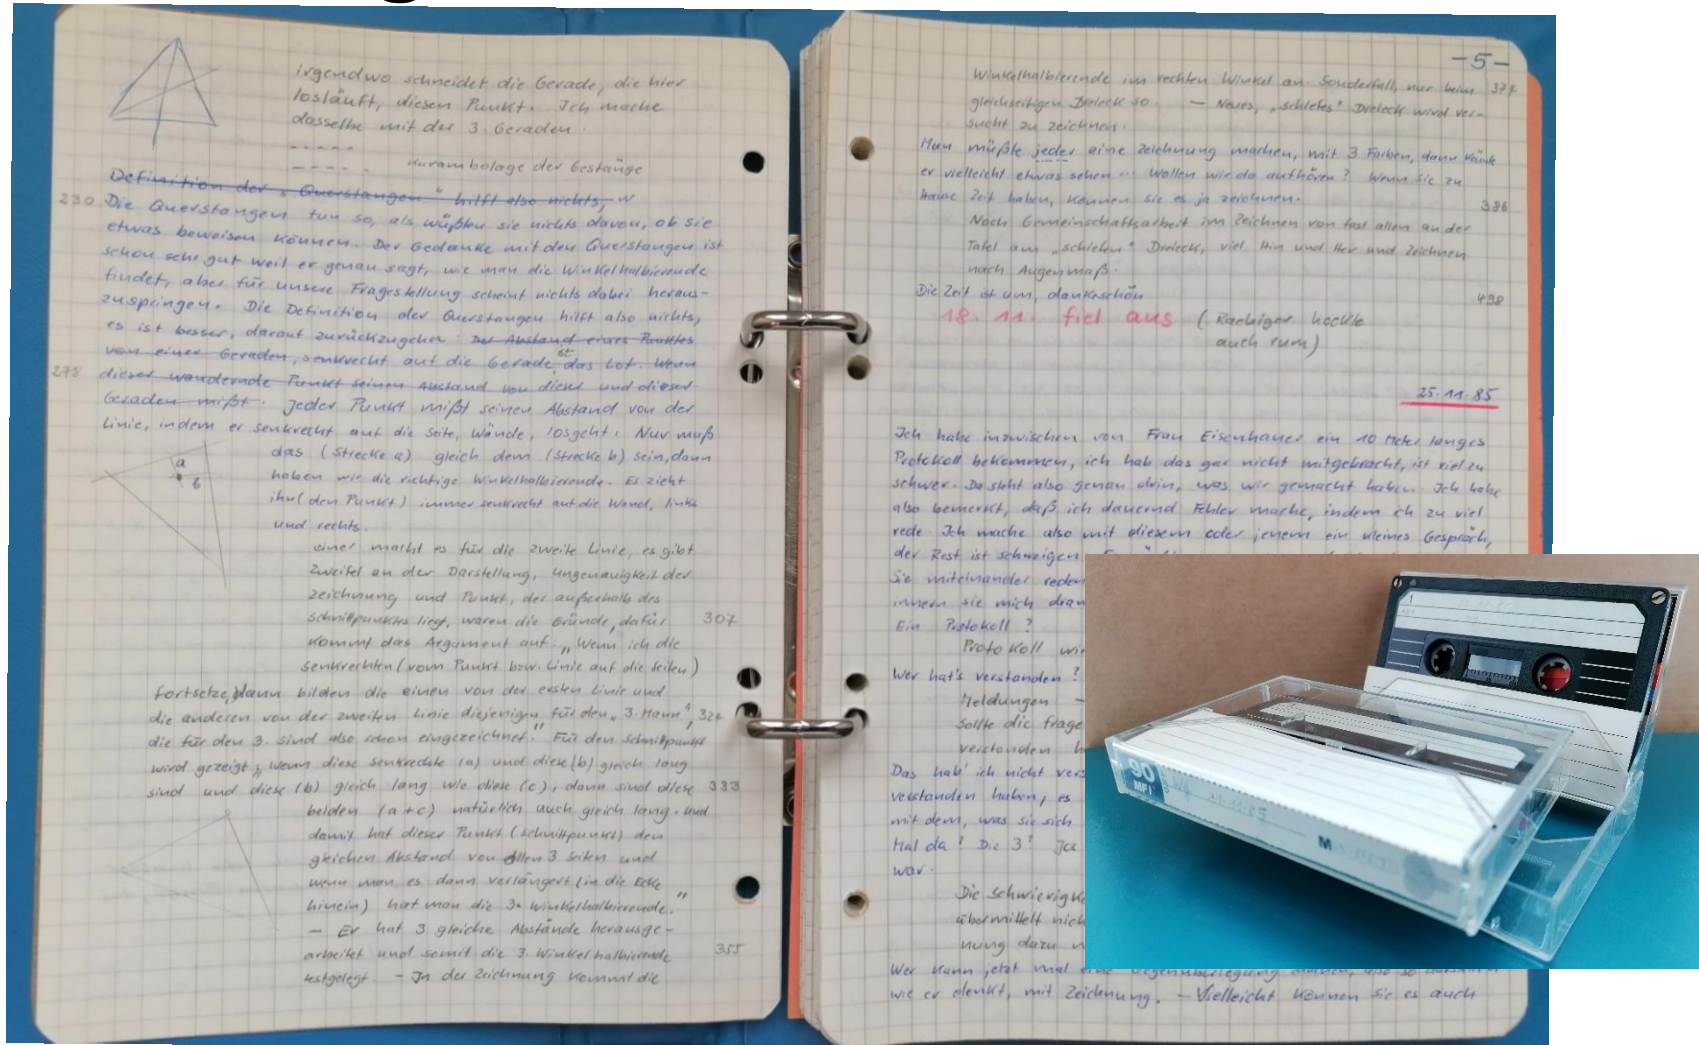 irgendwo schneidet die Gerade, die hier
losläuft, diesen Punkt. Ich mache
dasselbe mit der 3. Geraden.
- - - - -
- - - - - Karambolage der Gestänge
Definition der "Querstangen" hilft also nichts, w
230 Die Querstangen tun so, als wüßten sie nichts davon, ob sie
etwas beweisen können. Der Gedanke mit den Querstangen ist
schon sehr gut weil er genau sagt, wie man die Winkelhalbierende
findet, aber für unsere Fragestellung scheint nichts dabei heraus-
zuspringen. Die Definition der Querstangen hilft also nichts,
es ist besser, darauf zurückzugehen. Der Abstand eines Punktes
von einer Geraden, senkrecht auf die Gerade, ist das Lot. Wenn
278 dieser wandernde Punkt seinen Abstand von dieser und dieser
Geraden mißt. Jeder Punkt mißt seinen Abstand von der
Linie, indem er senkrecht auf die Seite, Wände, losgeht. Nur muß
das (Strecke a) gleich dem (Strecke b) sein, dann
a
haben wir die richtige Winkelhalbierende. Es zieht
b
ihn (den Punkt) immer senkrecht auf die Wand, links
und rechts.
einer macht es für die zweite Linie, es gibt
Zweifel an der Darstellung, Ungenauigkeit der
Zeichnung und Punkt, der außerhalb des
Schnittpunktes liegt, waren die Gründe, dafür 307
kommt das Argument auf: "Wenn ich die
Senkrechten (vom Punkt bzw. Linie auf die Seiten)
fortsetze, dann bilden die einen von der ersten Linie und
die anderen von der zweiten Linie diejenigen für den "3. Mann", 324
die für den 3. sind also schon eingezeichnet." Für den Schnittpunkt
wird gezeigt, "wenn diese Senkrechte (a) und diese (b) gleich lang
sind und diese (b) gleich lang wie diese (c), dann sind diese 333
beiden (a + c) natürlich auch gleich lang. Und
damit hat dieser Punkt (Schnittpunkt) den
gleichen Abstand von allen 3 Seiten und
wenn man es dann verlängert (in die Ecke
hinein) hat man die 3. Winkelhalbierende."
– Er hat 3 gleiche Abstände herausge-
arbeitet und somit die 3. Winkelhalbierende 355
festgelegt. – In der Zeichnung kommt die
-5-
Winkelhalbierende im rechten Winkel an. Sonderfall, nur beim 377
gleichseitigen Dreieck so. – Neues, "schiefes" Dreieck wird ver-
sucht zu zeichnen.
Man müßte jeder eine Zeichnung machen, mit 3 Farben, dann könnte
er vielleicht etwas sehen... Wollen wir da aufhören? Wenn Sie zu
Hause Zeit haben, können Sie es ja zeichnen. 386
Noch Gemeinschaftsarbeit im Zeichnen von fast allen an der
Tafel am "schiefen" Dreieck, viel Hin und Her und Zeichnen
nach Augenmaß.
Die Zeit ist um, dankeschön 498
18. 11. fiel aus (Raebiger hockte
auch rum)
25.11.85
Ich habe inzwischen von Frau Eisenhauer ein 10 Meter langes
Protokoll bekommen, ich hab das gar nicht mitgebracht, ist viel zu
schwer. Da steht also genau drin, was wir gemacht haben. Ich habe
also bemerkt, daß ich dauernd Fehler mache, indem ich zu viel
rede. Ich mache also mit diesem oder jenem ein kleines Gespräch,
der Rest ist schweigen.
Sie miteinander reden
innern sie mich dran
Ein Protokoll?
Protokoll
Wer hat's verstanden?
Meldungen –
Sollte die Frage
verstanden
Das hab' ich nicht
verstanden haben, es
mit dem, was sie sich
Mal da? Die 3? Ja
war.
Die
übermittelt
nung dazu
Wer kann jetzt mal eine
wie er denkt, mit Zeichnung. – Vielleicht können Sie es auch
90
MF I